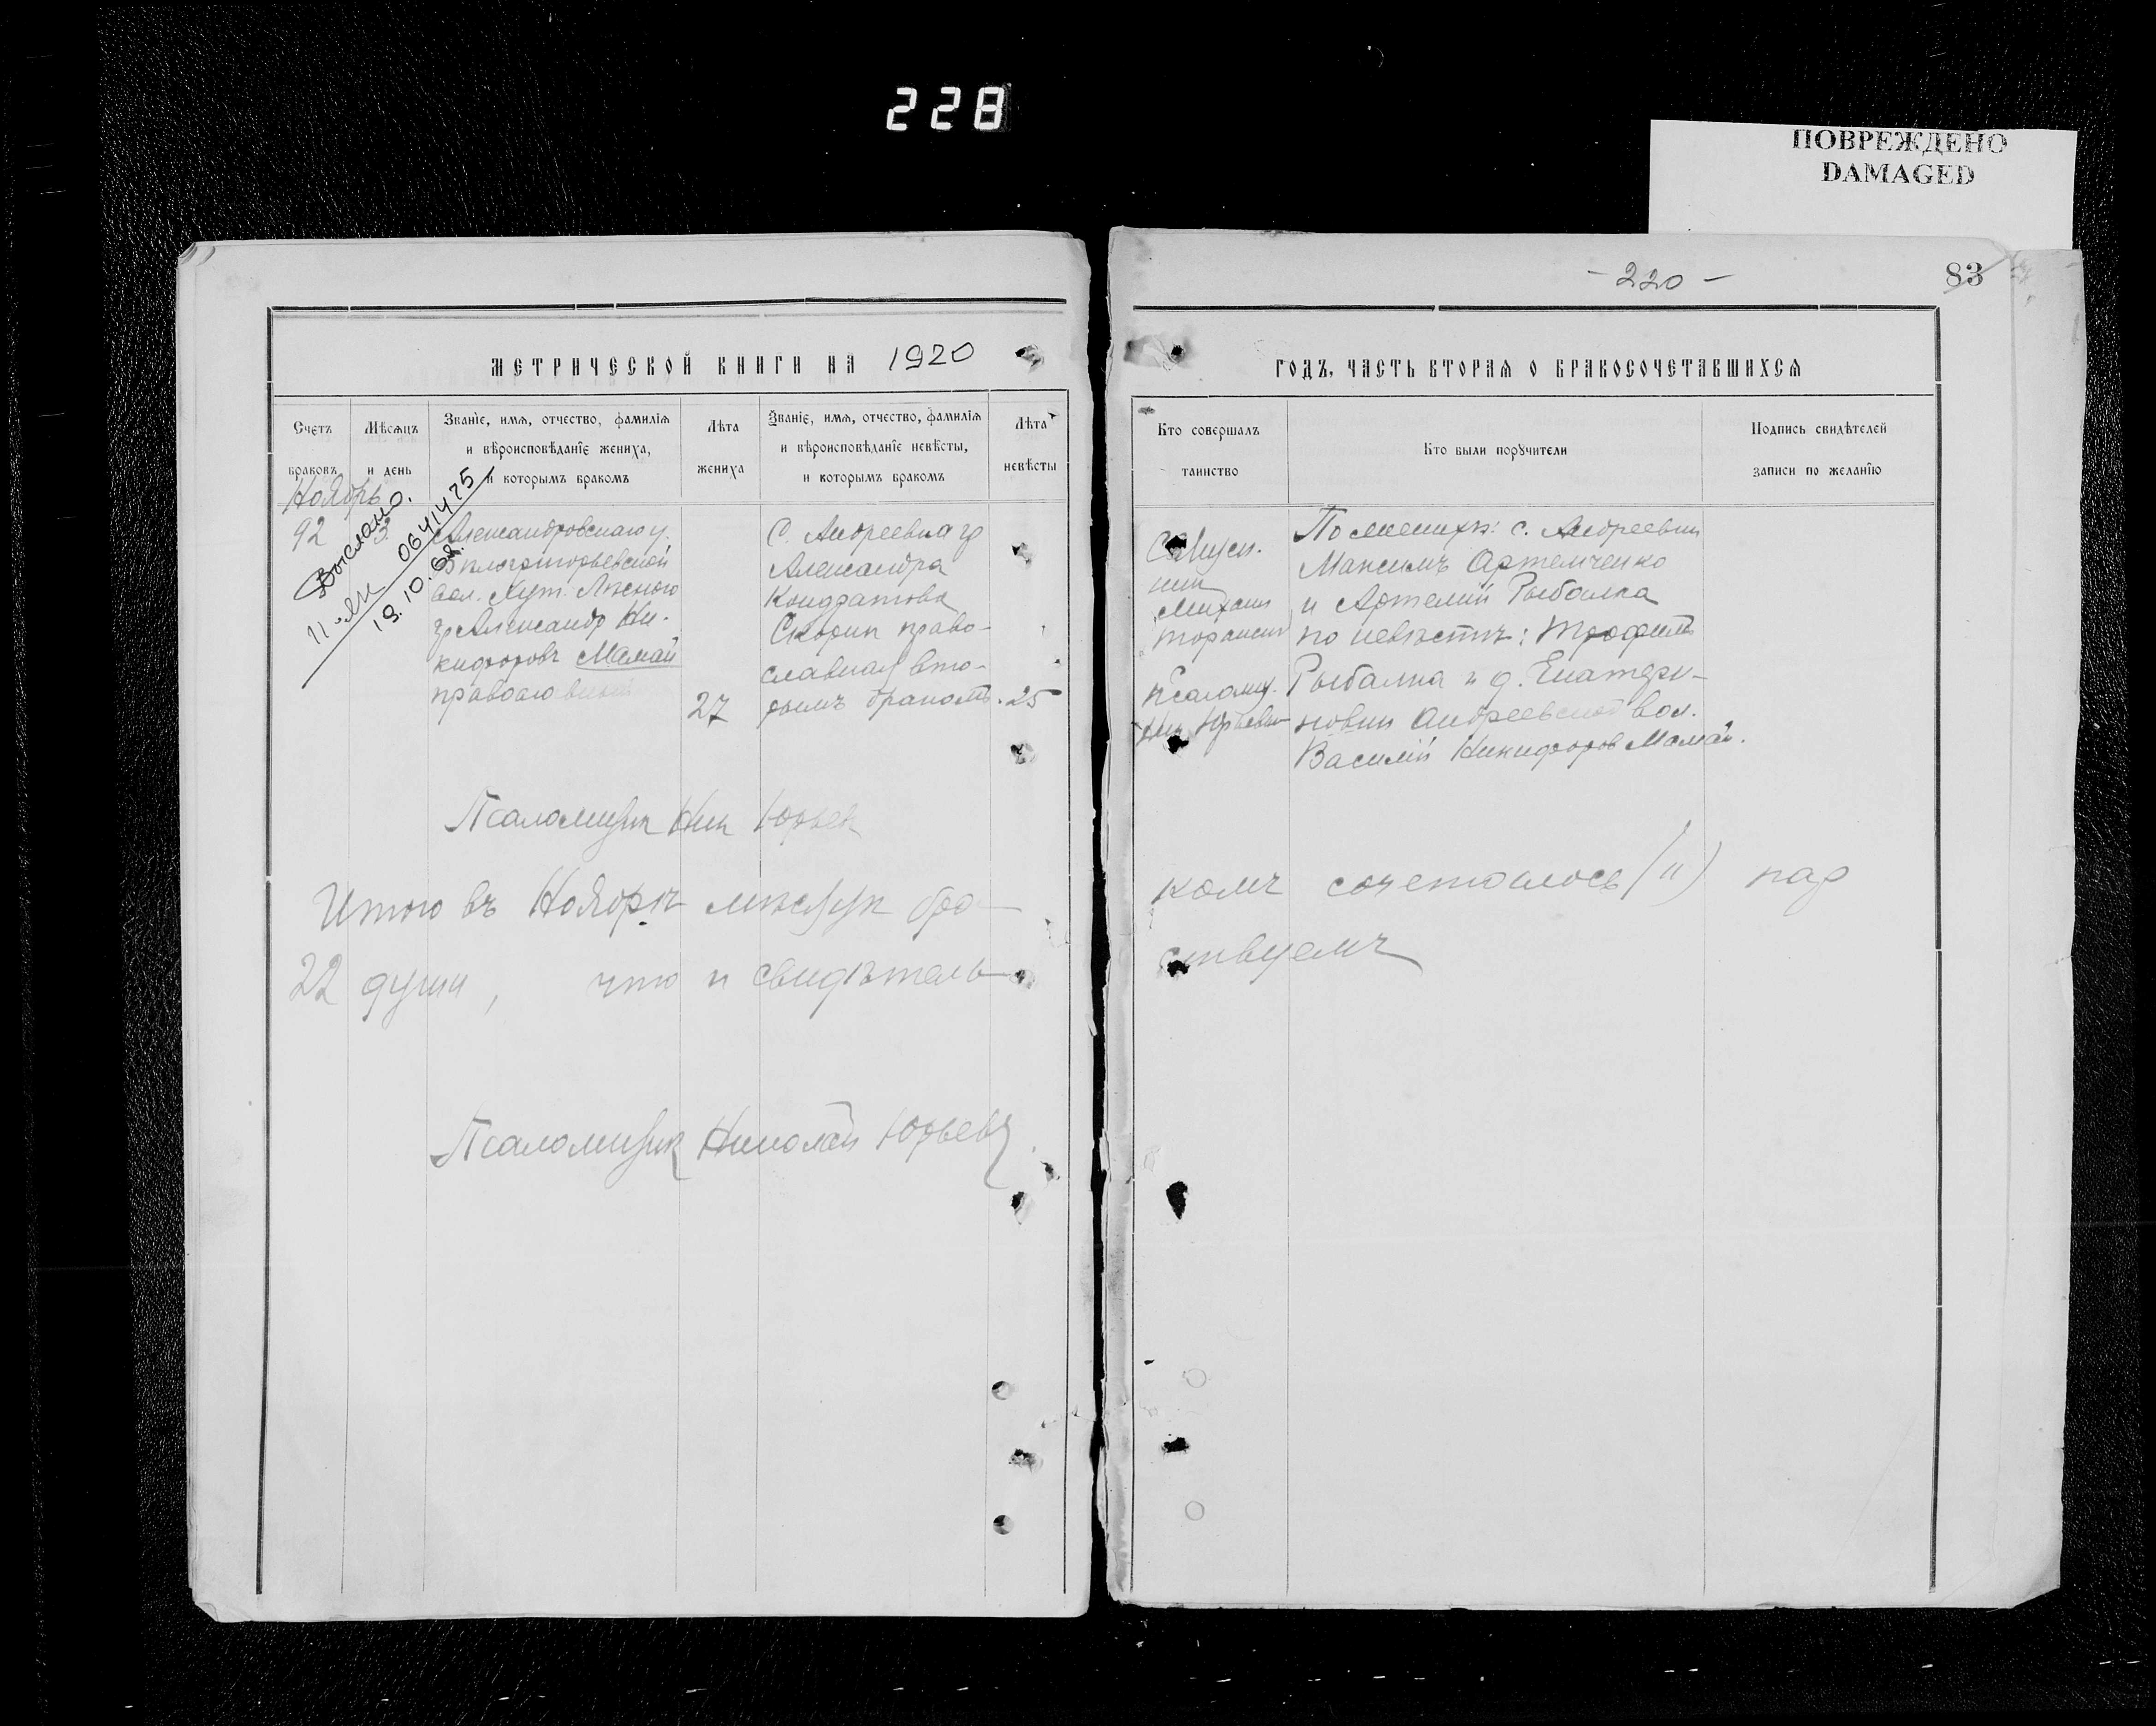 228
ПОВРЕЖДЕНО
DAMAGED
- 220 -
83
МЕТРИЧЕСКОЙ КНИГИ НА 1920
ГОДЪ, ЧАСТЬ ВТОРАЯ О БРАКОСОЧЕТАВШИХСЯ
Счетъ браковъ
Мѣсяцъ и день
Званіе, имя, отчество, фамилія
и вѣроисповѣданіе жениха,
и которымъ бракомъ
Лѣта жениха
Званіе, имя, отчество, фамилія
и вѣроисповѣданіе невѣсты,
и которымъ бракомъ
Лѣта невѣсты
Кто совершалъ
таинство
Кто были поручители
Подпись свидѣтелей
записи по желанію
Ноябрь
Выслано.
11-ЯК 0641475
19.10.68.
92
3
Александровскаго у.
вол. Хут. Лѣсного
гр Александр Ни-
кифоровъ Мамай
27
С. Андреевка гр
Александра
Кондратова
Скорик право-
славная вто-
рымъ бракомъ.
25
Священ.
ник
Михаил
Псаломщ.
Ник Юрьев
По женихѣ: с. Андреевки
Максимъ Артемченко
и Артемій Рыбалка
по невѣстѣ: Трофимъ
Рыбалка и д. Екатери-
новки Андреевской вол.
Василій Никифоров Мамай.
Псаломщик Ник Юрьев
Итого въ Ноябрѣ мѣсяцѣ бра-
комъ сочеталось (и) пар
22 души, что и свидѣтель-
ствуемъ
Псаломщик Николай Юрьевъ